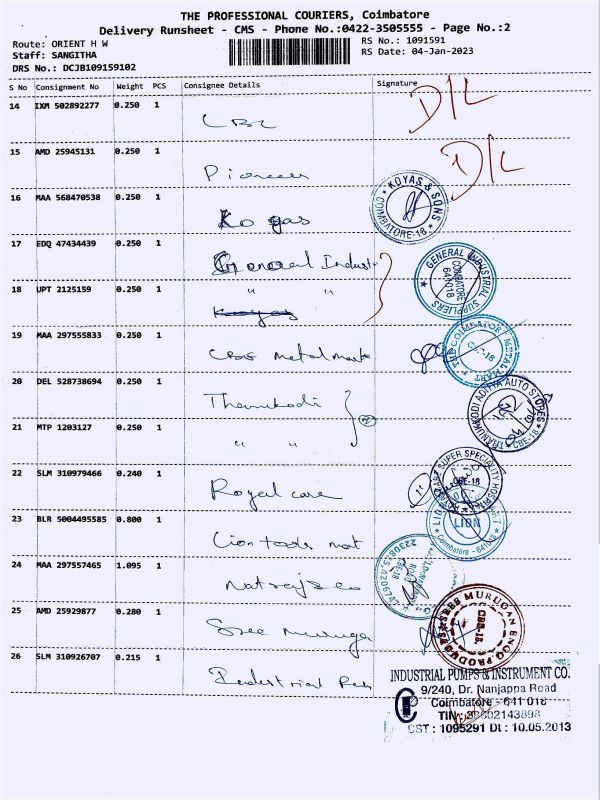 THE PROFESSIONAL COURIERS, Coimbatore
Delivery Runsheet - CMS - Phone No.:0422-3505555 - Page No.:2
Route: ORIENT H W
RS No.: 1091591
Staff: SANGITHA
RS Date: 04-Jan-2023
DRS No.: DCJB109159102
S No Consignment No Weight PCS Consignee Details Signature
14 IXM 502892277 0.250 1
D/L
15 AMD 25945131 0.250 1
Pioneer
D/L
16 MAA 568470538 0.250 1
Koyas
KOYAS & SONS
COIMBATORE-18
17 EDQ 47434439 0.250 1
General Indust
GENERAL INDUSTRIAL SUPPLIERS
COIMBATORE
641018
18 UPT 2125159 0.250 1
" "
19 MAA 297555833 0.250 1
Metal mart
THE COIMBATORE METAL MART
CBE-18
20 DEL 528738694 0.250 1
Thanukodi
THANUKKODI ADITYA AUTO STORES
CBE-18
21 MTP 1203127 0.250 1
" "
22 SLM 310979466 0.240 1
Royal care
SUPER SPECIALITY HOSPITAL
CBE-18
23 BLR 5004495585 0.800 1
Lion tools mat
LION
Coimbatore - 641
24 MAA 297557465 1.095 1
25 AMD 25929877 0.280 1
Sree muruga
SREE MURUGAN ENGG PRODUCTS
CBE-18.
26 SLM 310926707 0.215 1
Industrial
INDUSTRIAL PUMPS & INSTRUMENT CO.
9/240, Dr. Nanjappa Road
Coimbatore - 641 018
TIN:
CST : 1095291 Dt : 10.05.2013